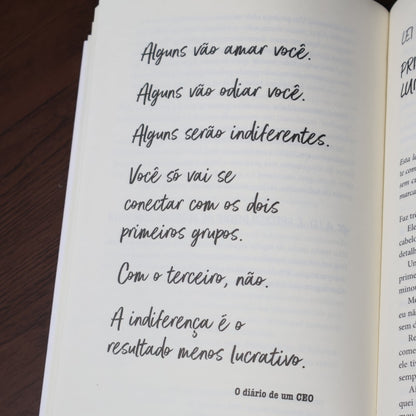 Alguns vão amar você.
Alguns vão odiar você.
Alguns serão indiferentes.
Você só vai se
conectar com os dois
primeiros grupos.
Com o terceiro, não.
A indiferença é o
resultado menos lucrativo.
O diário de um CEO
LEI
Esta l
te com
sem c
marca
Faz tr
Ele
cabelo
detalh
Un
minou
Me
eu nã
sem c
Re
ele tiv
semp
Ai
quei